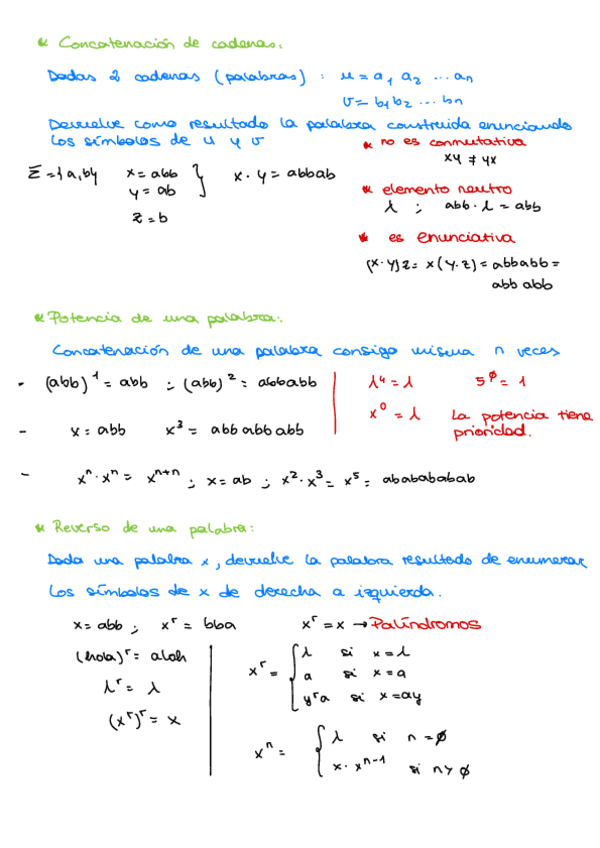 * Concatenación de cadenas:
Dadas 2 cadenas (palabras) : u = a₁ a₂ ... aₙ
v = b₁ b₂ ... bₙ
Devuelve como resultado la palabra construida enunciando
los símbolos de u y v
* no es conmutativa
xy ≠ yx
Σ = {a,b} x = abb } x · y = abbab
y = ab
z = b
* elemento neutro
λ ; abb · λ = abb
* es enunciativa
(x · y)z = x(y · z) = abbabb =
abb abb
* Potencia de una palabra:
Concatenación de una palabra consigo misma n veces
- (abb)¹ = abb ; (abb)² = abbabb
λ⁴ = λ 5^ø = 1
- x = abb x³ = abb abb abb
x⁰ = λ La potencia tiene
prioridad.
- xⁿ · xⁿ = xⁿ⁺ⁿ ; x = ab ; x² · x³ = x⁵ = ababababab
* Reverso de una palabra:
Dada una palabra x, devuelve la palabra resultado de enumerar
los símbolos de x de derecha a izquierda.
x = abb ; xʳ = bba xʳ = x → Palíndromos
(hola)ʳ = aloh
λʳ = λ
(xʳ)ʳ = x
xʳ = { λ si x = λ
a si x = a
yʳa si x = ay
xⁿ = { λ si n = ø
x · xⁿ⁻¹ si n > ø